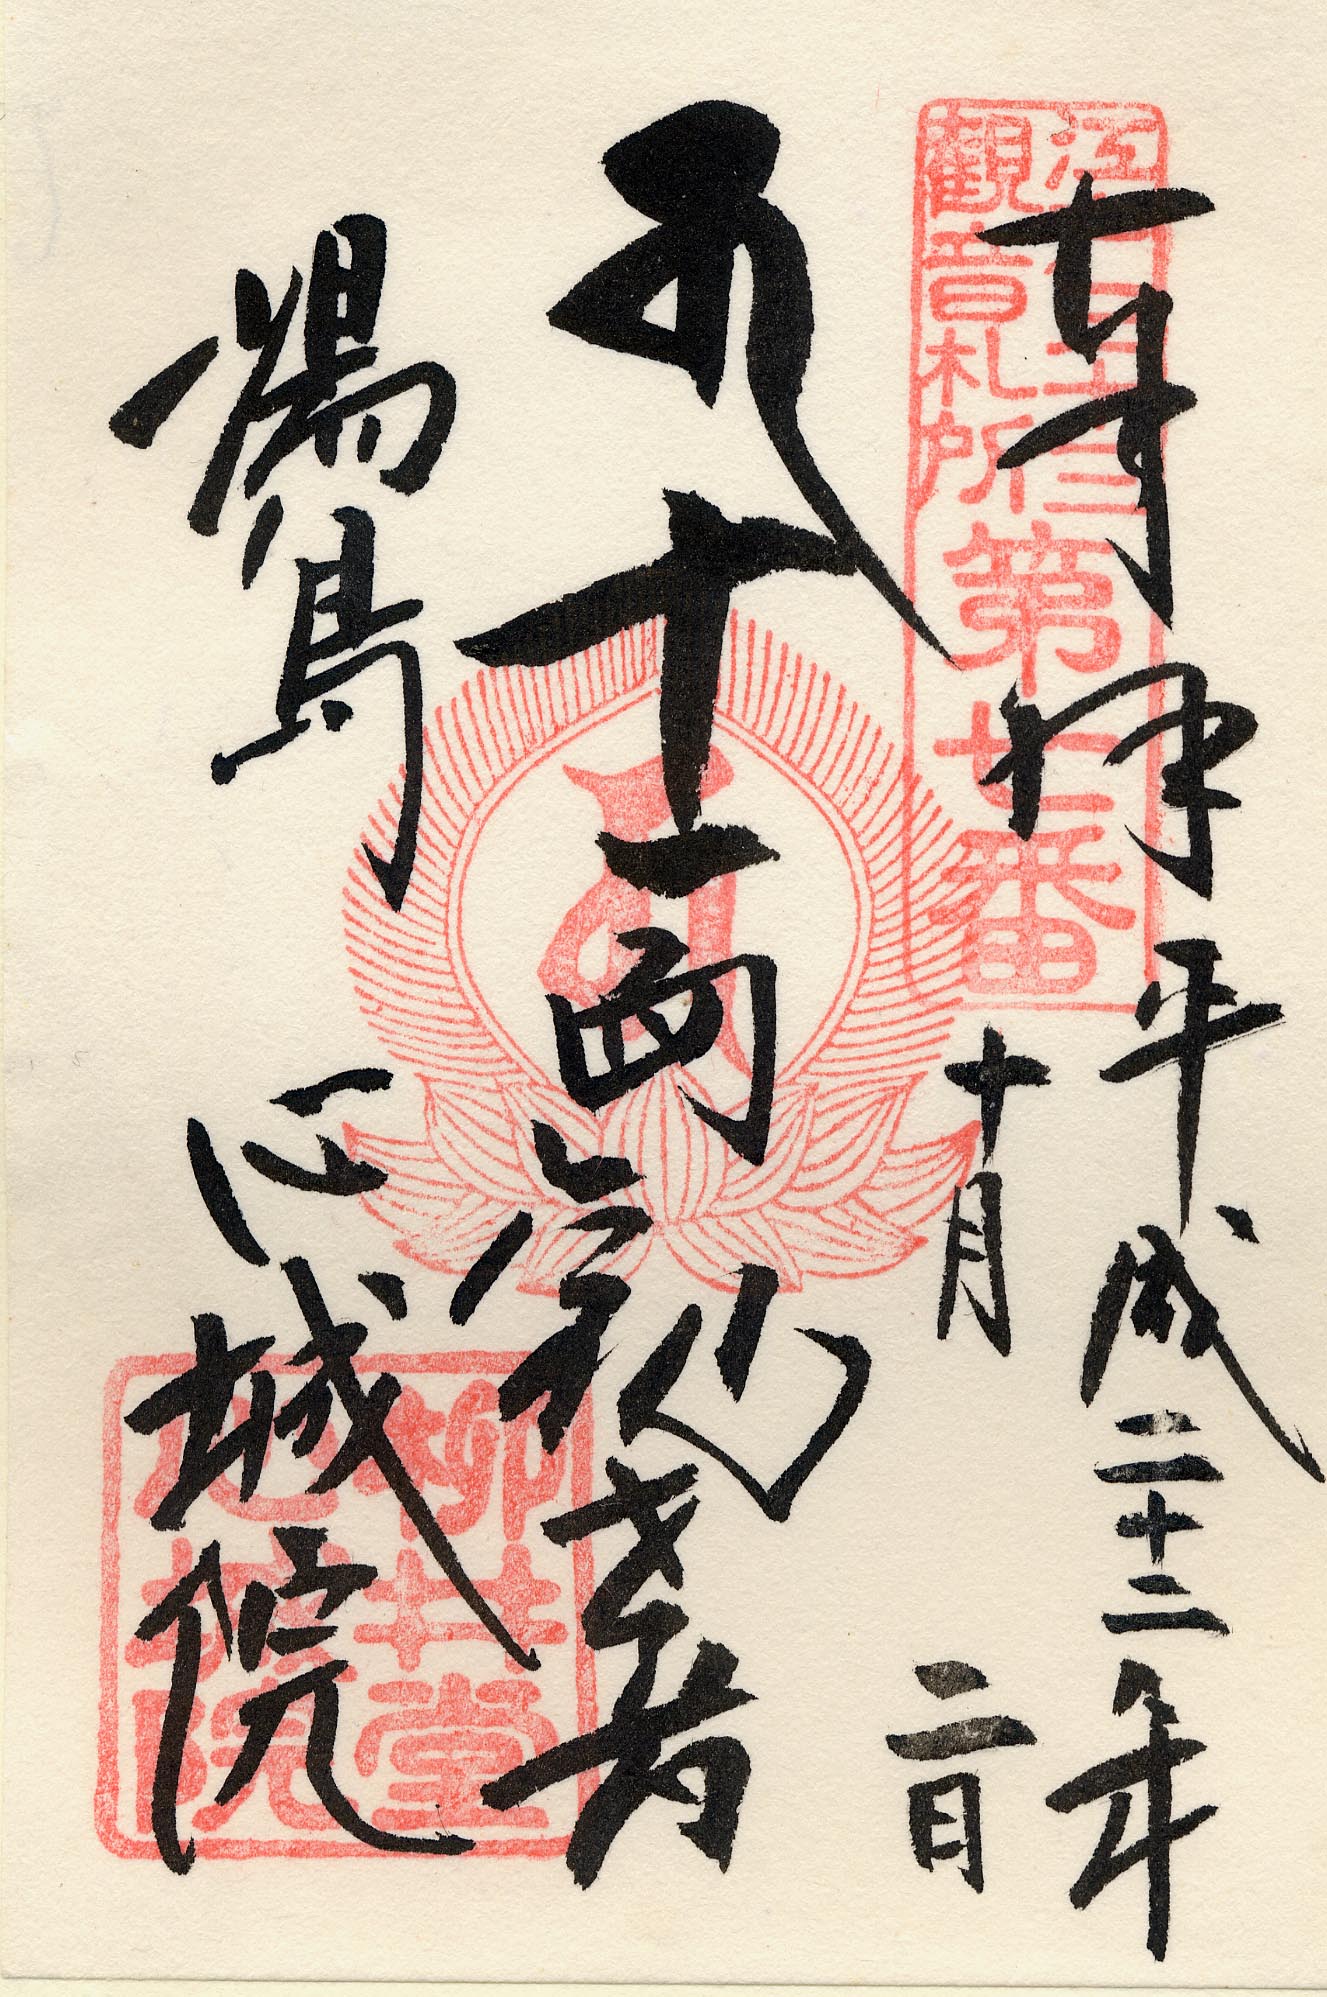 江戸三十三
観音札所
第七番
奉拝
平成二十二年
十月二日
十一面観世音
湯島
心城院
柳井堂
心城院